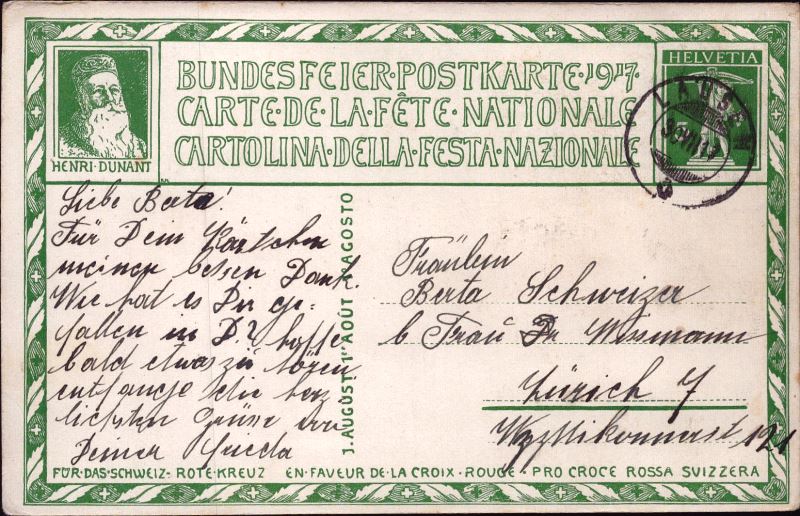 HENRI·DUNANT
BUNDESFEIER·POSTKARTE·1917·
CARTE·DE·LA·FÊTE·NATIONALE
CARTOLINA·DELLA·FESTA·NAZIONALE
HELVETIA
LAUSEN
Liebe Berta!
Für Dein Kärtchen
meinen besten Dank.
Wie hat es Dir ge-
fallen in D? hoffe
bald etwas zu hören
entfange die herz
lichsten Grüsse von
Deiner Frieda
1.AUGUST 1ER AOÛT 1.AGOSTO
Fräulein
Berta Schweizer
b Frau Dr Wissmann
Zürich 7
121
FÜR·DAS·SCHWEIZ- ROTE·KREUZ EN·FAVEUR·DE·LA CROIX·ROUGE- PRO CROCE ROSSA SVIZZERA